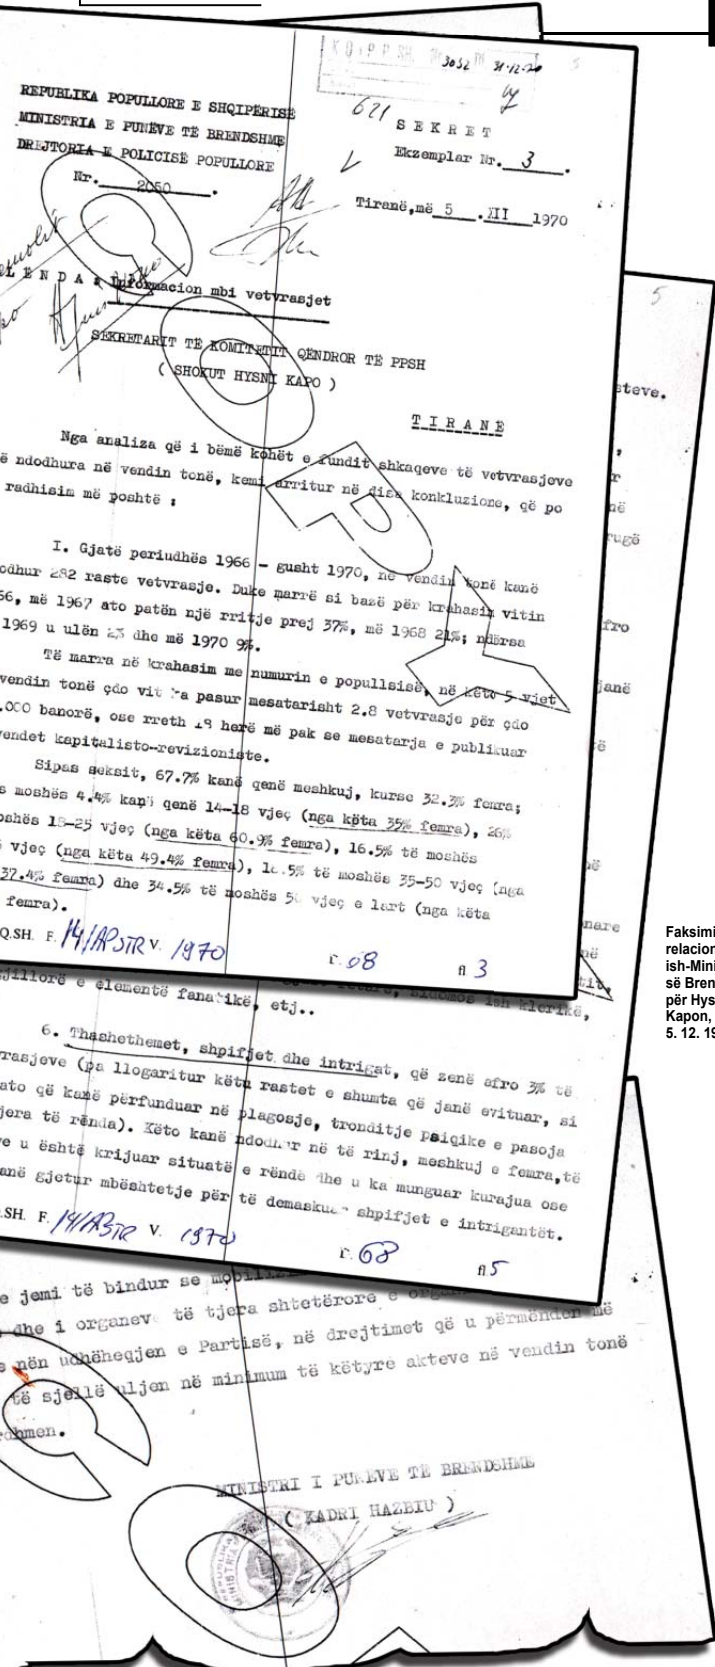 K Q i P P SH. Nr 3052 Dt 31·12·70
621
REPUBLIKA POPULLORE E SHQIPËRISË
MINISTRIA E PUNËVE TË BRENDSHME
DREJTORIA E POLICISË POPULLORE
Nr. 2050 .
S E K R E T
Ekzemplar Nr. 3 .
Tiranë,më 5 .XII 1970
L Ë N D A : Informacion mbi vetvrasjet
SEKRETARIT TË KOMITETIT QËNDROR TË PPSH
( SHOKUT HYSNI KAPO )
T I R A N Ë
Nga analiza që i bëmë kohët e fundit shkaqeve të vetvrasjeve
ë ndodhura në vendin tonë, kemi arritur në disa konkluzione, që po
radhisim më poshtë :
I. Gjatë periudhës 1966 - gusht 1970, në vendin tonë kanë
odhur 282 raste vetvrasje. Duke marrë si bazë për krahasim vitin
66, më 1967 ato patën një rritje prej 37%, më 1968 21%; ndërsa
1969 u ulën 2% dhe më 1970 9%.
Të marra në krahasim me numurin e popullsisë, në këto 5 vjet
vendin tonë çdo vit ka pasur mesatarisht 2.8 vetvrasje për çdo
.000 banorë, ose rreth 18 herë më pak se mesatarja e publikuar
vendet kapitalisto-revizioniste.
Sipas seksit, 67.7% kanë qenë meshkuj, kurse 32.3% femra;
s moshës 4.4% kanë qenë 14-18 vjeç (nga këta 35% femra), 26%
oshës 18-25 vjeç (nga këta 60.9% femra), 16.5% të moshës
vjeç (nga këta 49.4% femra), 18.5% të moshës 35-50 vjeç (nga
37.4% femra) dhe 34.5% të moshës 50 vjeç e lart (nga këta
femra).
Q.SH. F. 14/APSTR V. 1970 D. 68 fl 3
5
steve.
,
r
në
rugë
fro
janë
të
në
nare
në
tit,
gjillorë e elementë fanatikë, etj..
6. Thashethemet, shpifjet dhe intrigat, që zenë afro 3% të
vrasjeve (pa llogaritur këtu rastet e shumta që janë evituar, si
ato që kanë përfunduar në plagosje, tronditje psiqike e pasoja
jera të rënda). Këto kanë ndodhur në të rinj, meshkuj e femra,të
ve u është krijuar situatë e rëndë dhe u ka munguar kurajua ose
anë gjetur mbështetje për të demaskuar shpifjet e intrigantët.
.SH. F. 14/APSTR V. 1970 D. 68 fl. 5
e jemi të bindur se
dhe i organeve të tjera shtetërore e
e nën udhëheqjen e Partisë, në drejtimet që u përmënden më
të sjellë uljen në minimum të këtyre akteve në vendin tonë
MINISTRI I PUNËVE TË BRENDSHME
( KADRI HAZBIU )
COPY
CO
Faksimi
relacion
ish-Mini
së Bren
për Hys
Kapon,
5. 12. 19